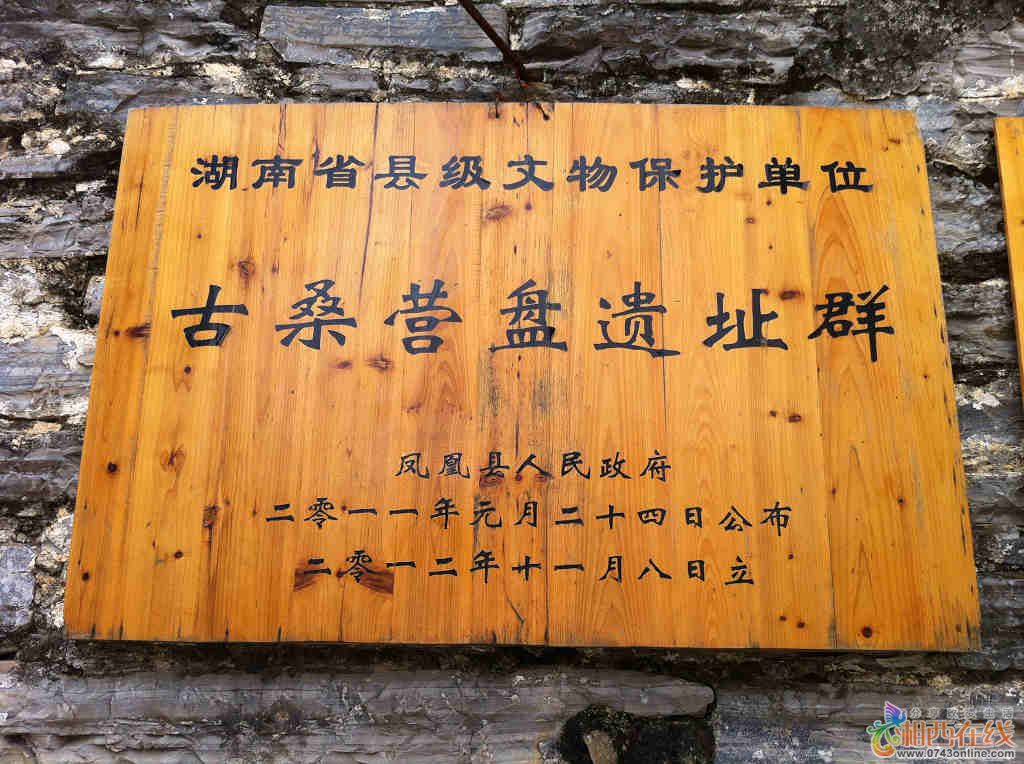 湖南省县级文物保护单位
古桑营盘遗址群
凤凰县人民政府
二零一一年元月二十四日公布
二零一二年十一月八日立
相西在线
www.0743online.com